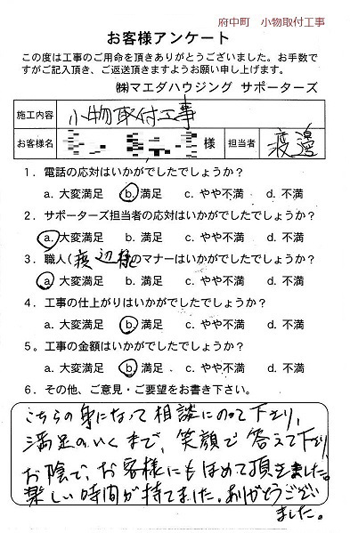 府中町 小物取付工事
お客様アンケート
この度は工事のご用命を頂きありがとうございました。お手数で
すがご記入頂き、ご返送頂きますようお願い申し上げます。
㈱マエダハウジング サポーターズ
施工内容 小物取付工事
お客様名 様 担当者 渡邊
1．電話の応対はいかがでしたでしょうか？
a. 大変満足 b. 満足 c. やや不満 d. 不満
2．サポーターズ担当者の応対はいかがでしたでしょうか？
a. 大変満足 b. 満足 c. やや不満 d. 不満
3．職人(渡辺様のマナーはいかがでしたでしょうか？
a. 大変満足 b. 満足 c. やや不満 d. 不満
4．工事の仕上がりはいかがでしたでしょうか？
a. 大変満足 b. 満足 c. やや不満 d. 不満
5。工事の金額はいかがでしたでしょうか？
a. 大変満足 b. 満足 c. やや不満 d. 不満
6．その他、ご意見・ご要望をお書き下さい。
こちらの身になって相談にのって下り、
満足のいくまで、笑顔で答えて下り、
お陰で、お客様にもほめて頂きました。
楽しい時間が持てました。ありがとうござい
ました。